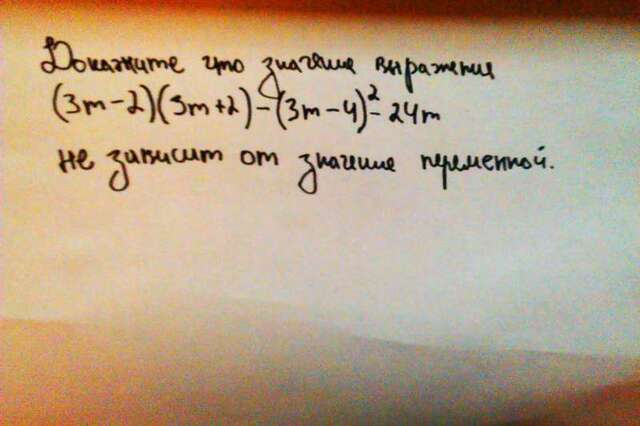 Докажите что значение выражения
(3m-2)(3m+2)-(3m-4)²-24m
не зависит от значение переменной.